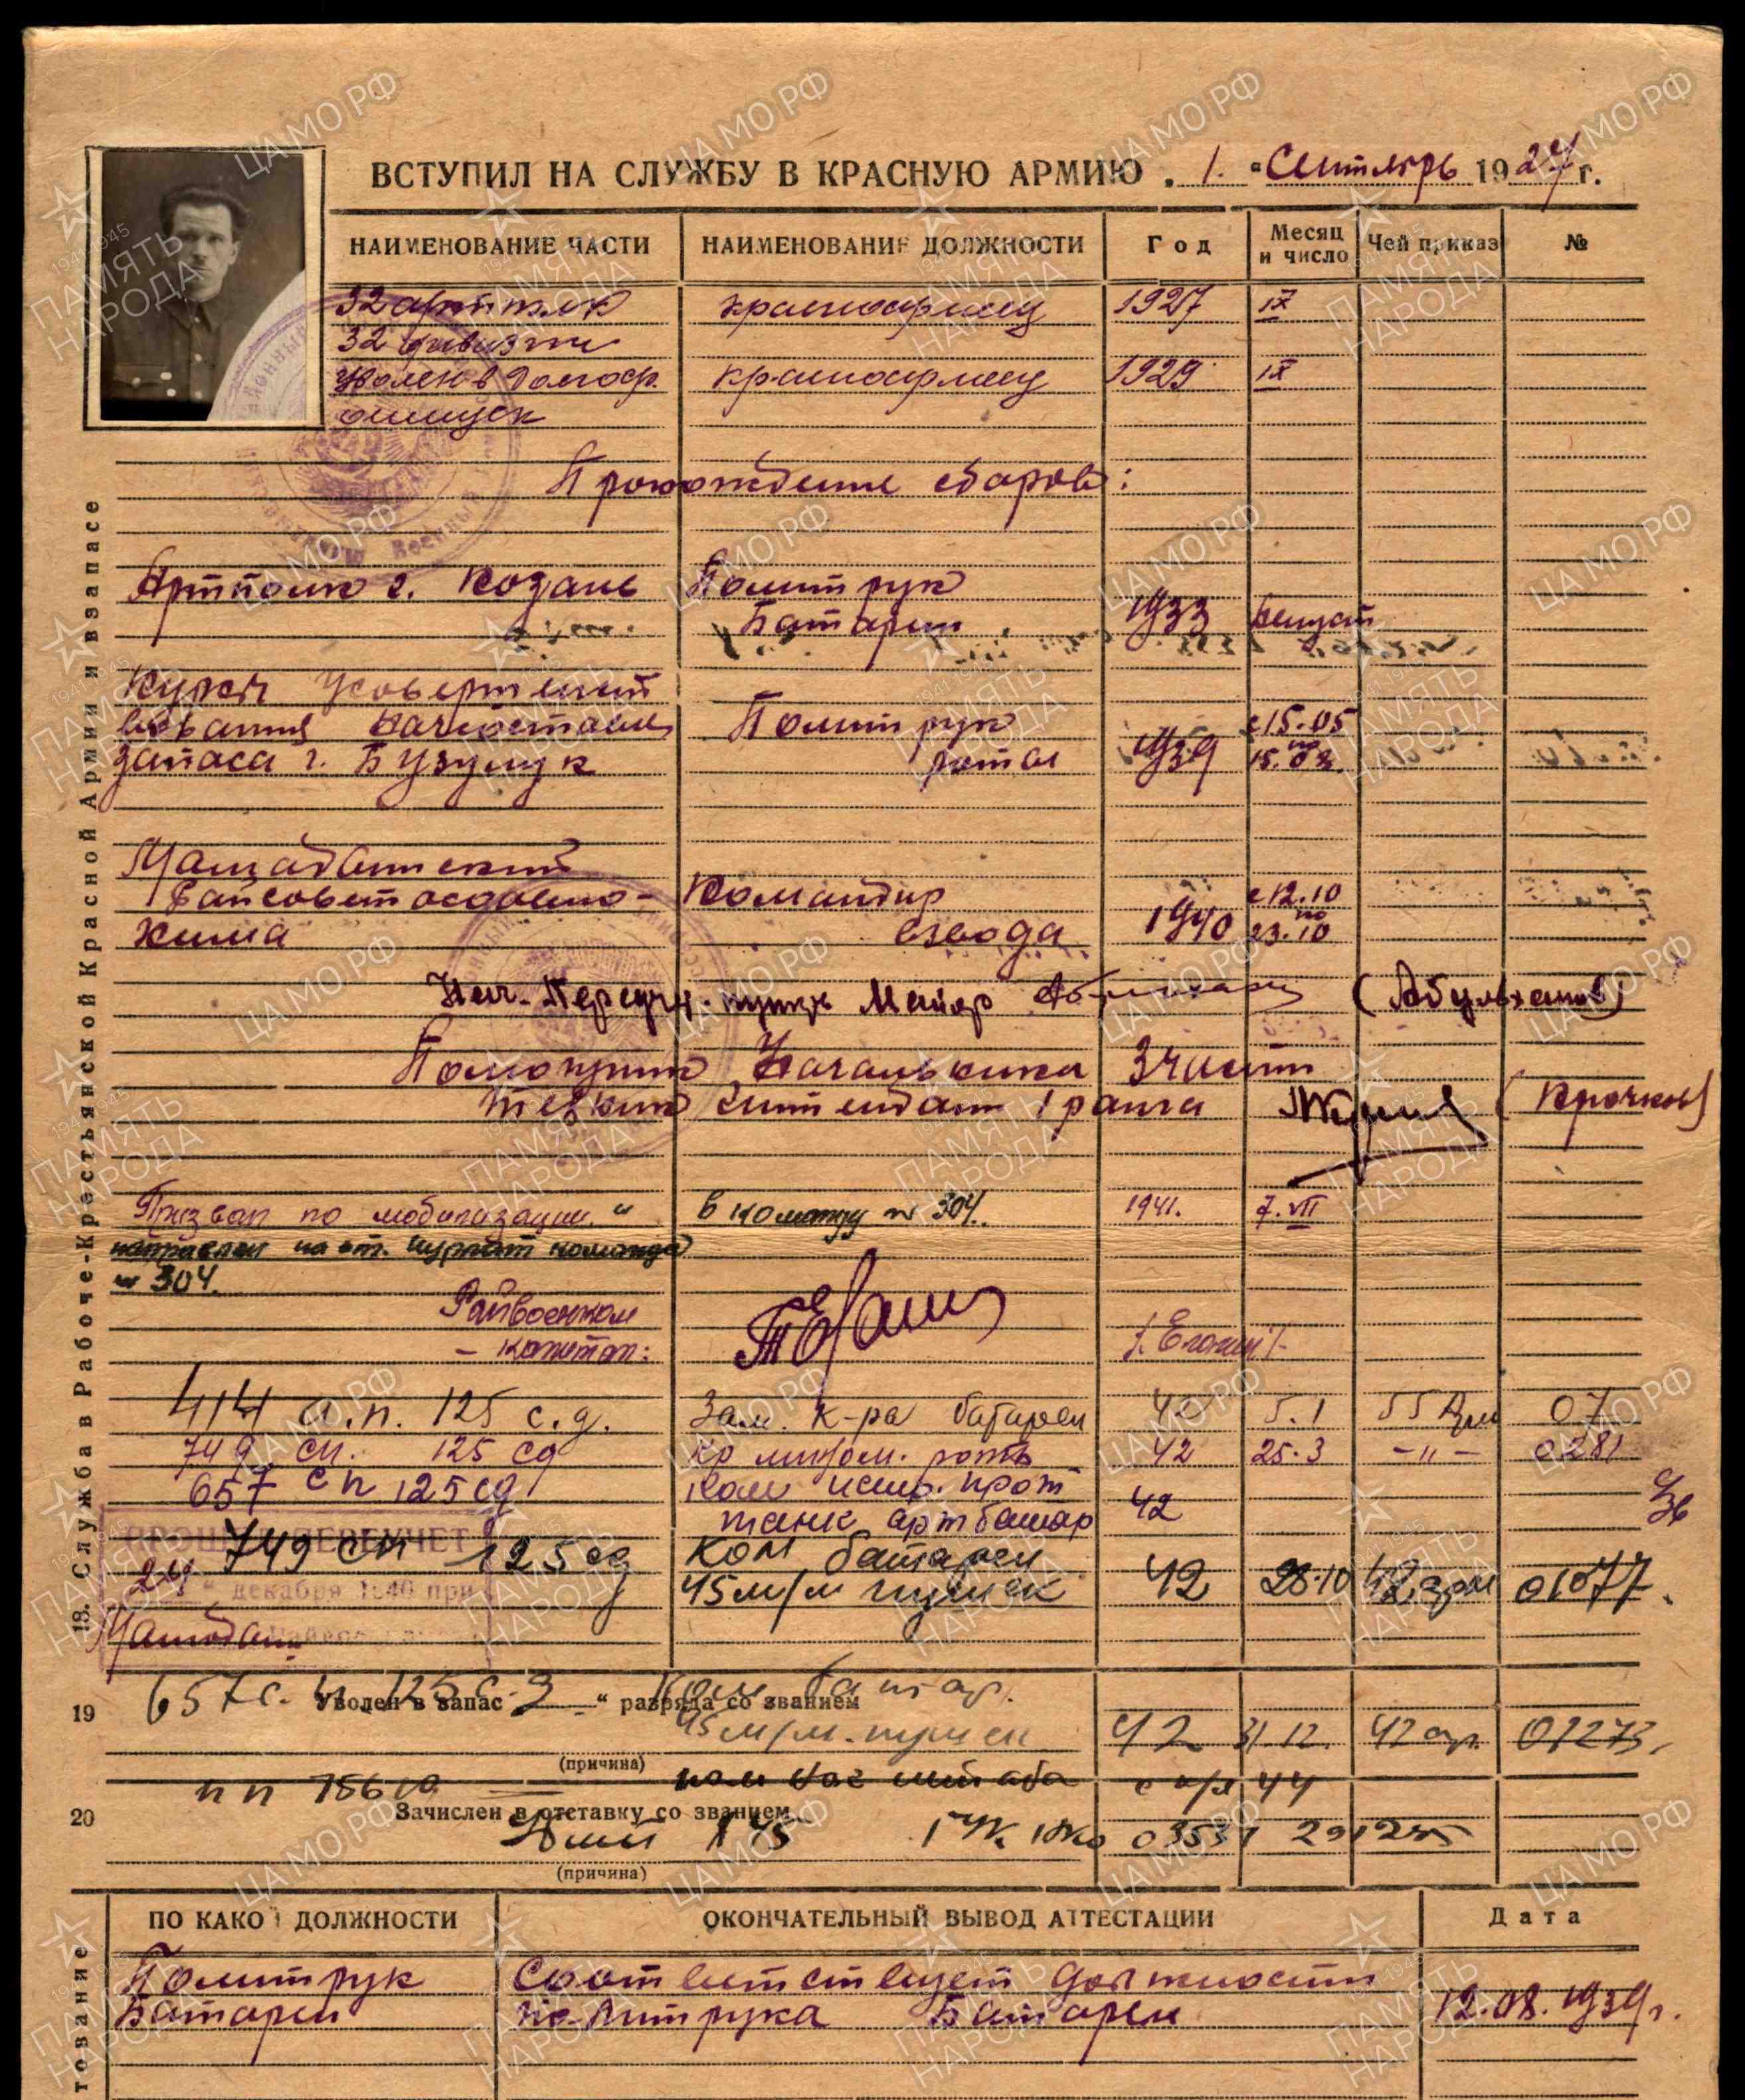 ВСТУПИЛ НА СЛУЖБУ В КРАСНУЮ АРМИЮ „ 1. “ Сентябрь 1927 г.
НАИМЕНОВАНИЕ ЧАСТИ НАИМЕНОВАНИЕ ДОЛЖНОСТИ Год Месяц и число Чей приказ №
32 артполк красноармеец 1927 IX
32 дивизии
Уволен в долгоср. красноармеец 1929 IX
отпуск
Прохождение сборов:
Артполк г. Козань Политрук
Батареи 1933
Курсы усовершенст
вования начсостава Политрук с 15.05
запаса г. Бузулук роты 1939 по 15.08.
Райсовет осоавиа- Командир с 12.10
хима взвода 1940 по 23.10
Нач. пункта Майор
Помощник Начальника 3 части
техник интендант 1 ранга (Крючков)
Призван по мобилизации " в команду № 304. 1941. 7. VII
направлен на ст. команда
№ 304.
Райвоенком
- капитан:
414 а.п. 125 с.д. Зам. к-ра батареи 42 5.1 55 Арм 07
749 сп. 125 сд ко мином. роты 42 25.3 -"- 0281
657 сп 125 сд Ком истр. прот
танк арт батар 42
ПРОШЕЛ ПЕРЕУЧЕТ
749 сп 125 сд Ком батареи
24 " декабря 1940 при 45 м/м пушек 42 28.10 42 арм 01077.
657 с.п. 125 с.д Ком батар.
19 Уволен в запас „ “ разряда со званием
45 м/м. пушек 42 31.12. 42 ар. 01273.
(причина)
пом нач штаба с 44
20 Зачислен в отставку со званием
(причина)
ПО КАКОЙ ДОЛЖНОСТИ ОКОНЧАТЕЛЬНЫЙ ВЫВОД АТТЕСТАЦИИ Дата
Политрук Соответствует должности
Батареи политрука Батареи 12.08.1939 г.
18. Служба в Рабоче-Крестьянской Красной Армии и в запасе
ЦАМО РФ
ПАМЯТЬ НАРОДА
1941-1945